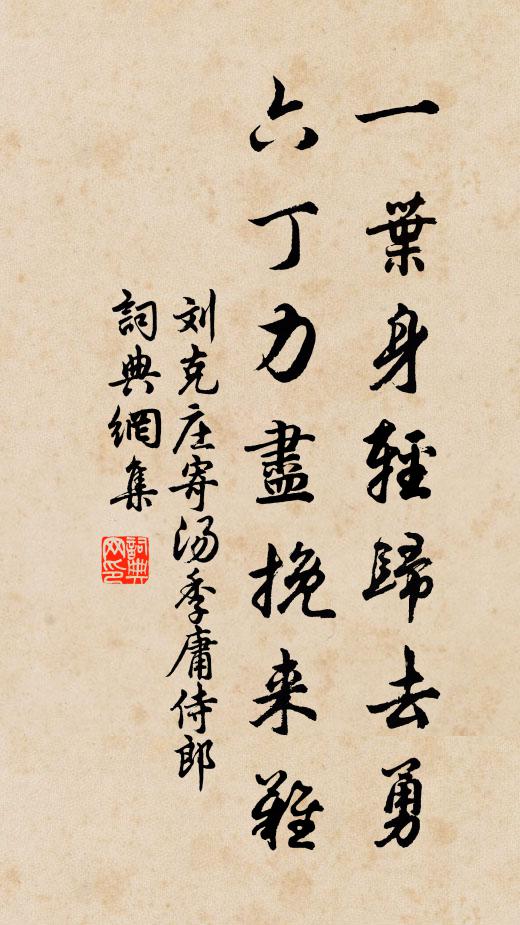 一葉身輕歸去勇
六丁力盡挽来難
刘克庄寄汤季庸侍郎
詞典網集
詞典
网印